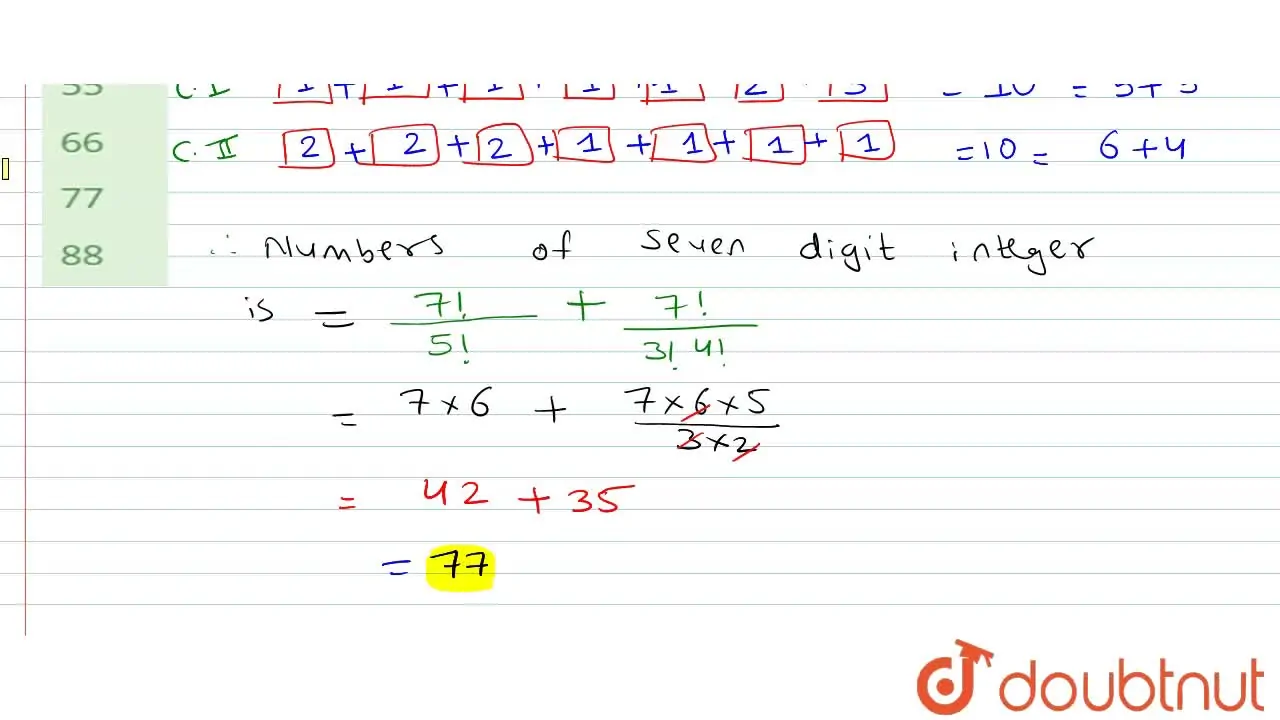 55 C.I 1 + 1 + 1 + 1 + 1 2 3 = 10 = 5+5
66 C.II 2 + 2 + 2 + 1 + 1 + 1 + 1 =10 = 6+4
77
88 ∴ Numbers of seven digit integer
is = 7!/5! + 7!/3! 4!
= 7×6 + 7×6×5/3×2
= 42 + 35
= 77
doubtnut